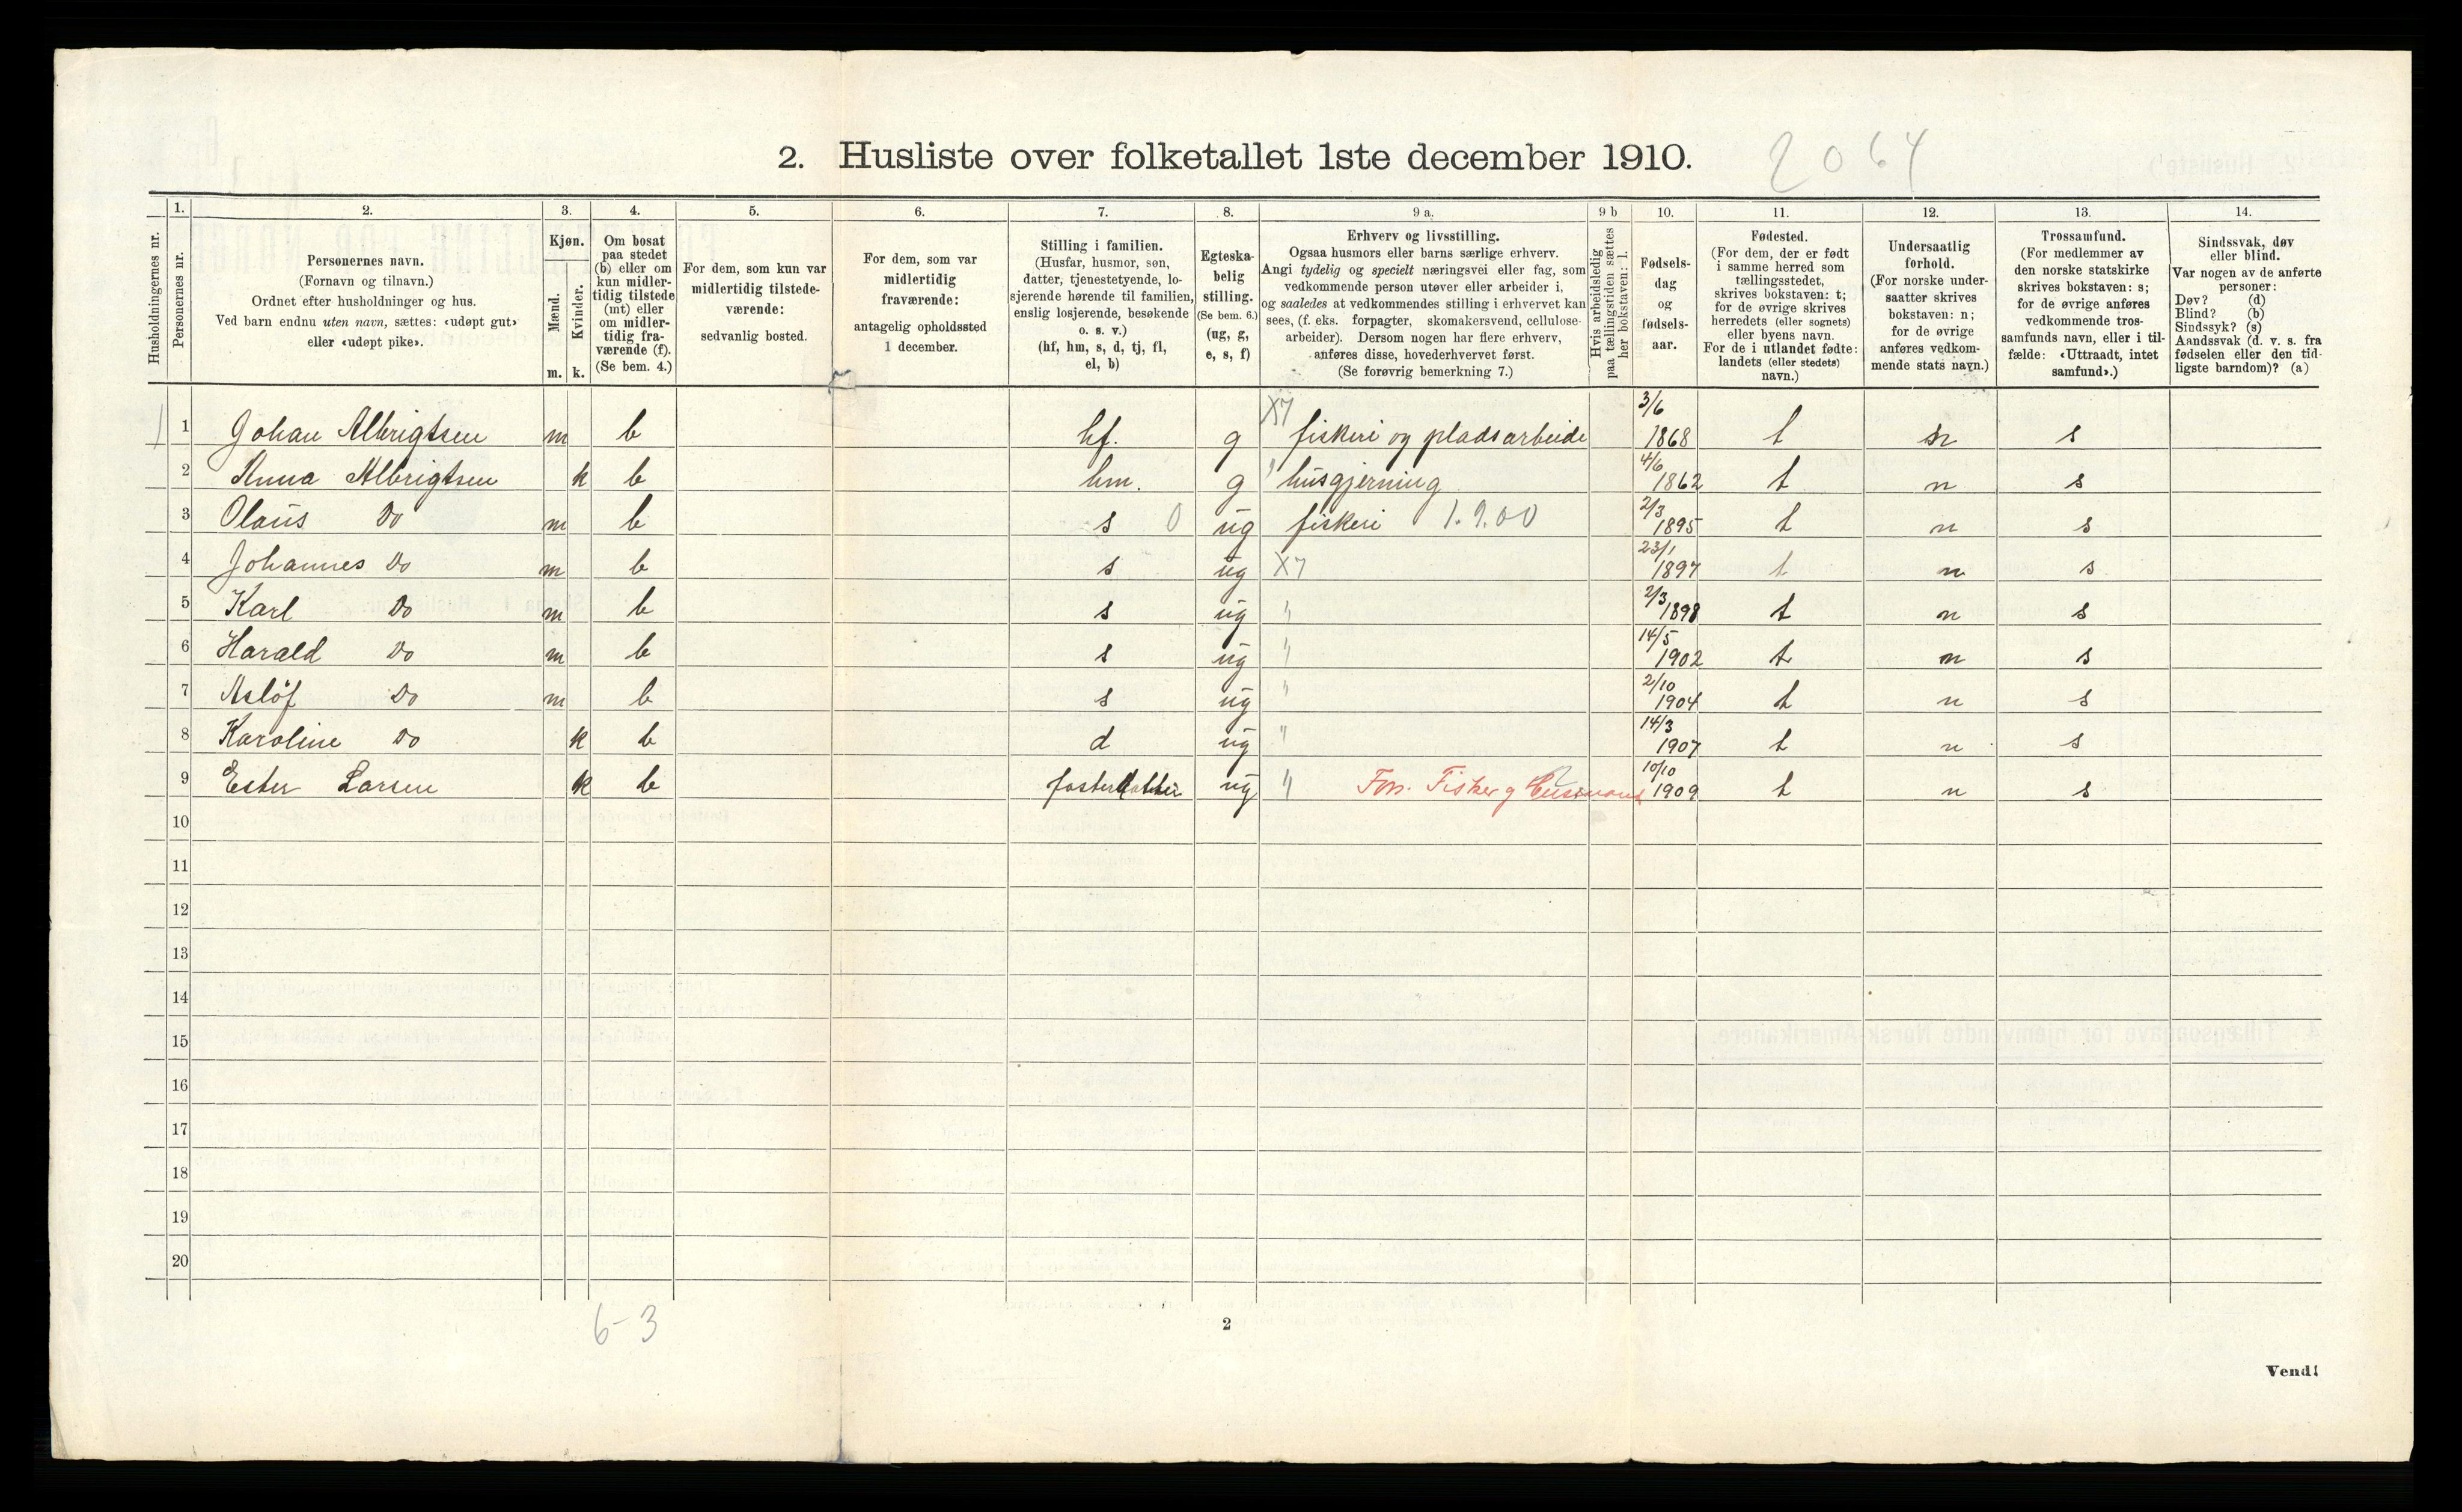 2. Husliste over folketallet 1ste december 1910.
2064
Husholdningernes nr.
1. Personernes nr.
2. Personernes navn.
(Fornavn og tilnavn.)
Ordnet efter husholdninger og hus.
Ved barn endnu uten navn, sættes: «udøpt gut»
eller «udøpt pike».
3. Kjøn.
Mænd. m.
Kvinder. k.
4. Om bosat
paa stedet
(b) eller om
kun midler-
tidig tilstede
(mt) eller
om midler-
tidig fra-
værende (f).
(Se bem. 4.)
5. For dem, som kun var
midlertidig tilstede-
værende:
sedvanlig bosted.
6. For dem, som var
midlertidig
fraværende:
antagelig opholdssted
1 december.
7. Stilling i familien.
(Husfar, husmor, søn,
datter, tjenestetyende, lo-
sjerende hørende til familien,
enslig losjerende, besøkende
o. s. v.)
(hf, hm, s, d, tj, fl,
el, b)
8. Egteska-
belig
stilling.
(Se bem. 6.)
(ug, g,
e, s, f)
9 a. Erhverv og livsstilling.
Ogsaa husmors eller barns særlige erhverv.
Angi tydelig og specielt næringsvei eller fag, som
vedkommende person utøver eller arbeider i,
og saaledes at vedkommendes stilling i erhvervet kan
sees, (f. eks. forpagter, skomakersvend, cellulose-
arbeider). Dersom nogen har flere erhverv,
anføres disse, hovederhvervet først.
(Se forøvrig bemerkning 7.)
9 b Hvis arbeidsledig
paa tællingstiden sættes
her bokstaven: l.
10. Fødsels-
dag
og
fødsels-
aar.
11. Fødested.
(For dem, der er født
i samme herred som
tællingsstedet,
skrives bokstaven: t;
for de øvrige skrives
herredets (eller sognets)
eller byens navn.
For de i utlandet fødte:
landets (eller stedets)
navn.)
12. Undersaatlig
forhold.
(For norske under-
saatter skrives
bokstaven: n;
for de øvrige
anføres vedkom-
mende stats navn.)
13. Trossamfund.
(For medlemmer av
den norske statskirke
skrives bokstaven: s;
for de øvrige anføres
vedkommende tros-
samfunds navn, eller i til-
fælde: «Uttraadt, intet
samfund».)
14. Sindssvak, døv
eller blind.
Var nogen av de anførte
personer:
Døv? (d)
Blind? (b)
Sindssyk? (s)
Aandssvak (d. v. s. fra
fødselen eller den tid-
ligste barndom)? (a)
1 Johan Albrigtsen m b hf. g X7 fiskeri og pladsarbeide 3/6 1868 t n s
2 Anna Albrigtsen k b hm. g " husgjerning 4/6 1862 t n s
3 Olaus Do m b s 0 ug fiskeri 1.9.00 2/3 1895 t n s
4 Johannes Do m b s ug X7 23/1 1897 t n s
5 Karl Do m b s ug " 2/3 1898 t n s
6 Harald Do m b s ug " 14/5 1902 t n s
7 Asløf Do m b s ug " 2/10 1904 t n s
8 Karoline Do k b d ug " 14/3 1907 t n s
9 Ester Larsen k b fosterdatter ug " Fors. Fisker g Husmand 10/10 1909 t n s
10
11
12
13
14
15
16
17
18
19
20
6-3
2
Vend!